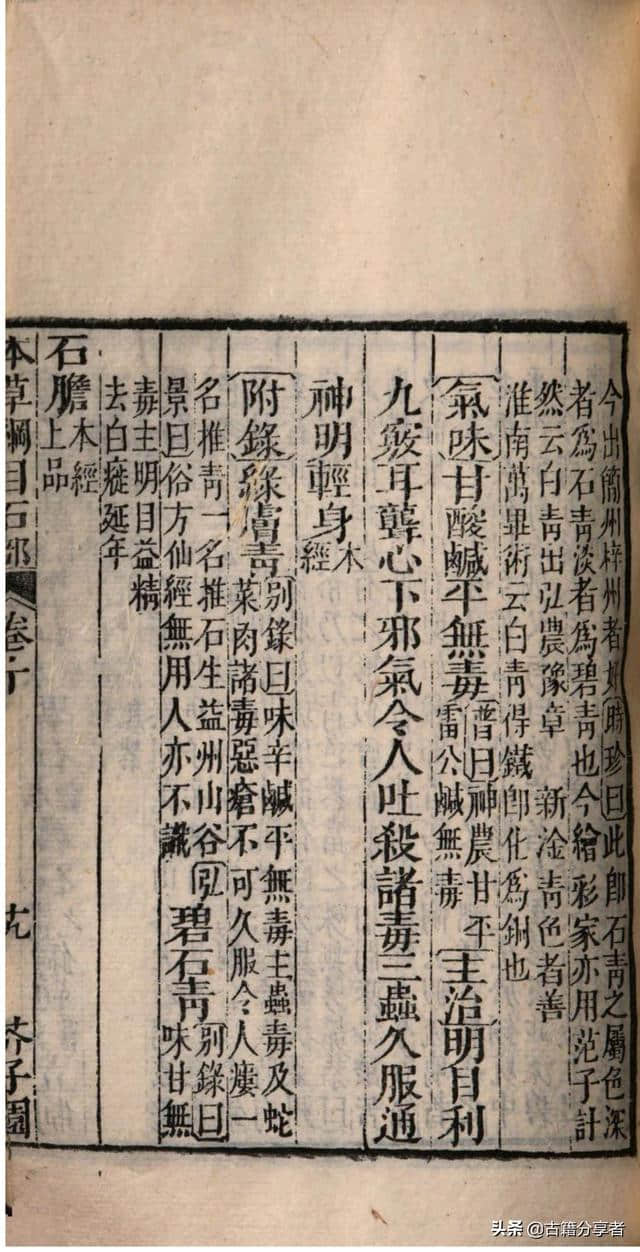 今出簡州梓州者好時珍曰此卽石青之屬色深
者爲石青淡者爲碧青也今繪彩家亦用范子計
然云白青出弘農豫章 新淦青色者善
淮南萬畢術云白青得鐵卽化爲銅也
氣味甘酸鹹平無毒普曰神農甘平雷公鹹無毒主治明目利
九竅耳聾心下邪氣令人吐殺諸毒三蟲久服通
神明輕身本經
附錄綠膚青別錄曰味辛鹹平無毒主蟲毒及蛇
菜肉諸毒惡瘡不可久服令人瘻一
名推青一名推石生益州山谷弘
景曰俗方仙經無用人亦不識碧石青別錄曰味甘無
毒主明目益精
去白延年
石膽本經上品
本草綱目石部 卷十 芥子園
头条 @古籍分享者